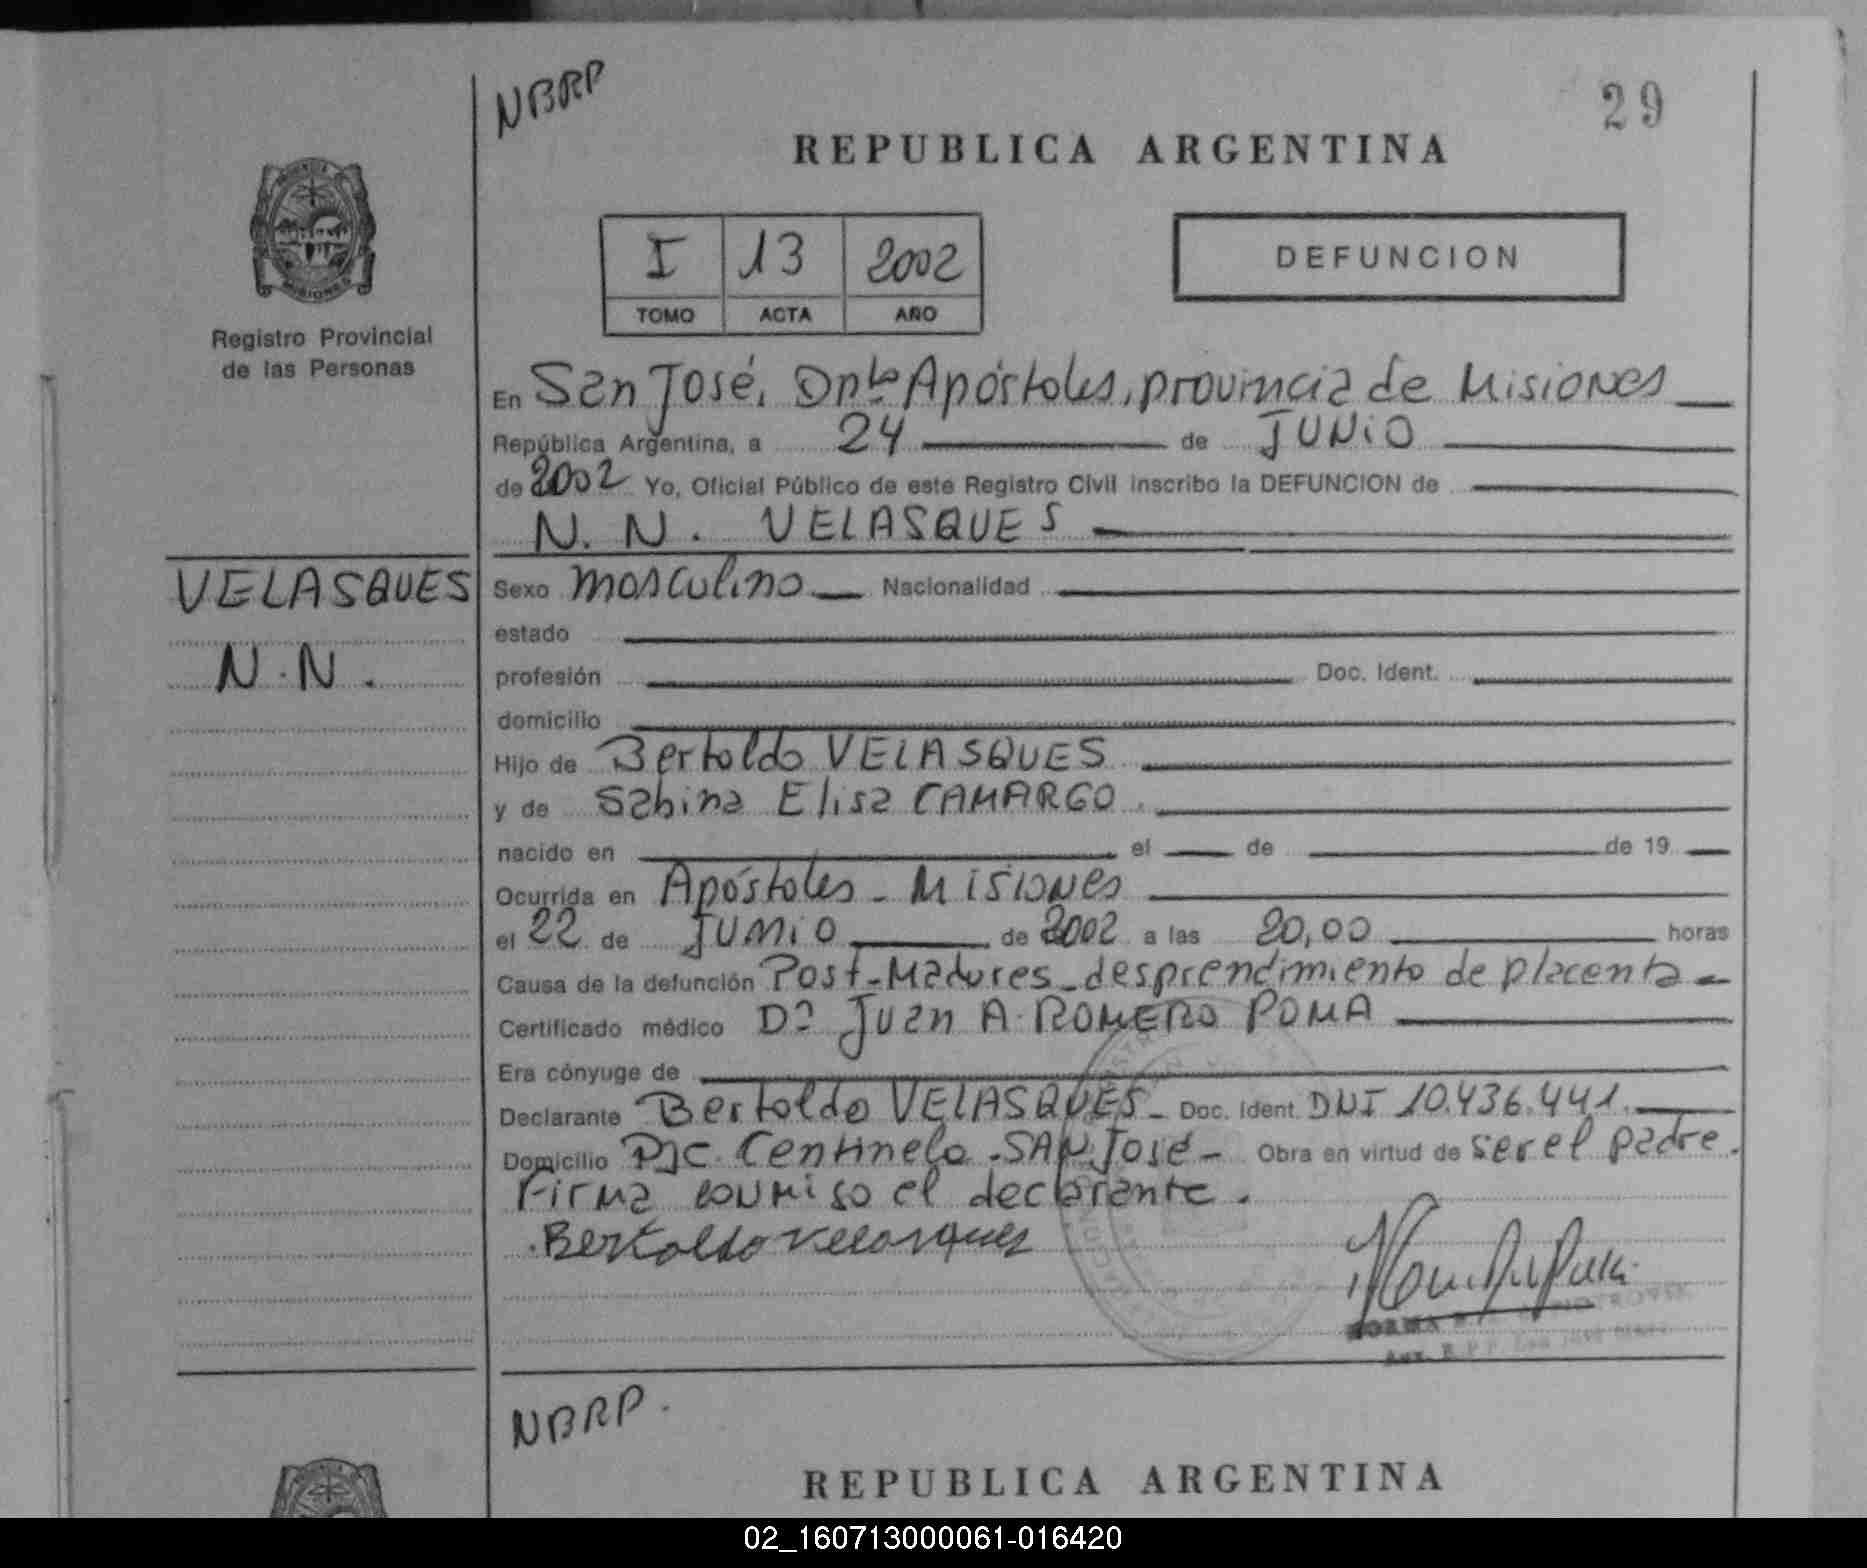 NBRP
29
REPUBLICA ARGENTINA
MISIONES
Registro Provincial
de las Personas
I 13 2002
TOMO ACTA AÑO
DEFUNCION
En San José, Dpto Apóstoles, provincia de Misiones
República Argentina, a 24 de JUNIO
de 2002 Yo, Oficial Público de este Registro Civil inscribo la DEFUNCION de
N. N. VELASQUES
VELASQUES
N.N.
Sexo masculino Nacionalidad
estado
profesión Doc. Ident.
domicilio
Hijo de Bertoldo VELASQUES
y de Sabina Elisa CAMARGO
nacido en el de de 19
Ocurrida en Apóstoles - Misiones
el 22 de JUNIO de 2002 a las 20,00 horas
Causa de la defunción Post-Madures - desprendimiento de placenta -
Certificado médico Dr Juan A. ROMERO POMA
Era cónyuge de
Declarante Bertoldo VELASQUES - Doc. Ident. DNI 10.436.441.
Domicilio Pje Centinela - SAN José - Obra en virtud de ser el padre.
Firma conmigo el declarante.
Bertoldo Velasques
NORMA
NBRP.
REPUBLICA ARGENTINA
02_160713000061-016420